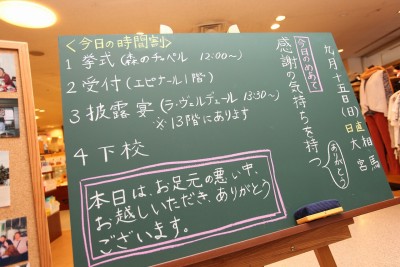 <今日の時間割>
1 挙式(森のチャペル 12:00~)
2 受付(エピナール1階)
3 披露宴(ラ・ヴェルデュール 13:30~)
※13階にあります
4 下校
本日は、お足元の悪い中、
お越しいただき、ありがとう
ございます。
九月十五日(日)
日直 相馬
大宮
ありがとう
今日のめあて
感謝の気持ちを持つ